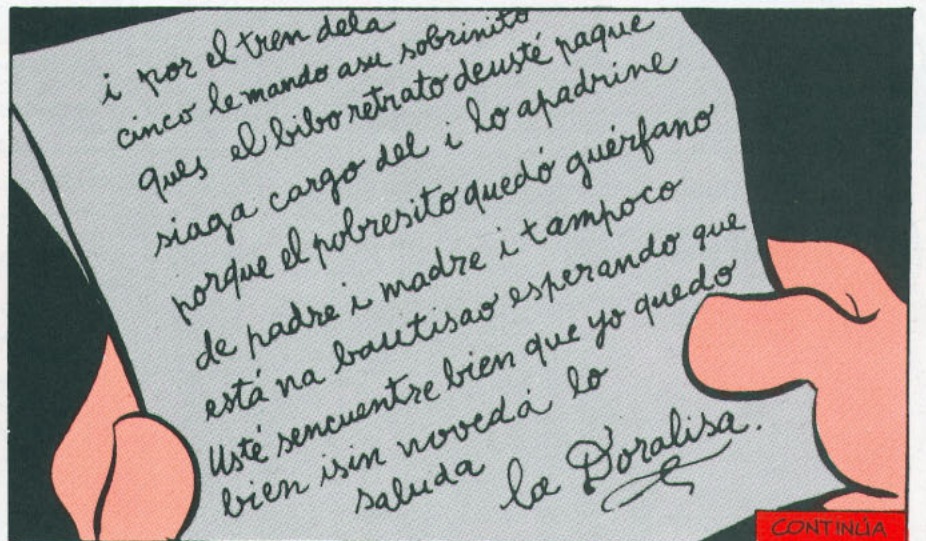 i por el tren dela
cinco le mando asu sobrinito
ques el bibo retrato deusté paque
siaga cargo del i lo apadrine
porque el pobresito quedó guérfano
de padre i madre i tampoco
está na bautisao esperando que
Usté sencuentre bien que yo quedo
bien isin novedá lo
saluda la Doralisa.
CONTINÚA